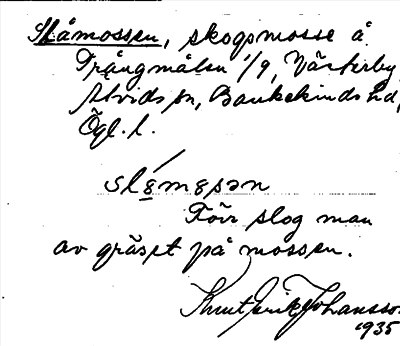 Slåmossen, skogsmosse å
Trångmålen 1/9, Västerby,
Atvids sn, Bankekinds hd,
Ögl. l.
slåmosən
Förr slog man
av gräset på mossen.
Knut Erik Johansson
1935